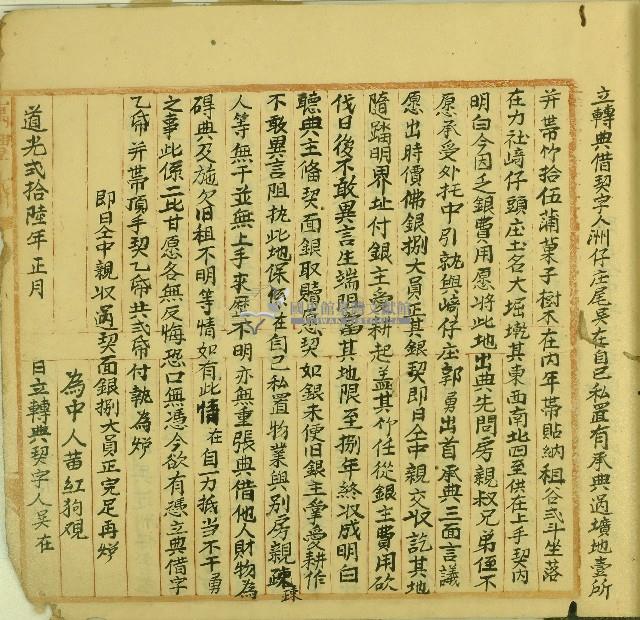 立轉典借契字人洲仔庄尾吳在自己私置有承典過壙地壹所
并帶竹拾伍蒲菓子樹不在內年帶貼納租谷弍斗坐落
在力社崎仔頭庄土名大堀墘其東西南北四至供在上手契內
明白今因乏銀費用愿將此地出典先問房親叔兄弟侄不
愿承受外托中引就與崎仔庄郭勇出首承典三面言議
愿出時價佛銀捌大員正其銀契即日仝中親交收訖其地
隨踏明界址付銀主受耕起蓋其竹任從銀主費用砍
伐日後不敢異言生端限當其地限至捌年終收成明白
聽典主俻契面銀取贖愿契如銀未便旧銀主掌受耕作
不敢異言阻执此地保係在自己私置物業與別房親疎
疎
人等無干並無上手來厯不明亦無重張典借他人財物為
碍典及施欠旧租不明等情如有此情在自一力抵当不干勇
之事此係二比甘愿各無反悔恐口無憑今欲有憑立典借字
乙帋并帶頂手契乙帋共弍帋付執為炤
即日仝中親收過契面銀捌大員正完足再炤
為中人黃紅狗硯
道光弍拾陸年正月
日立轉典契字人吳在
國立臺灣文獻館